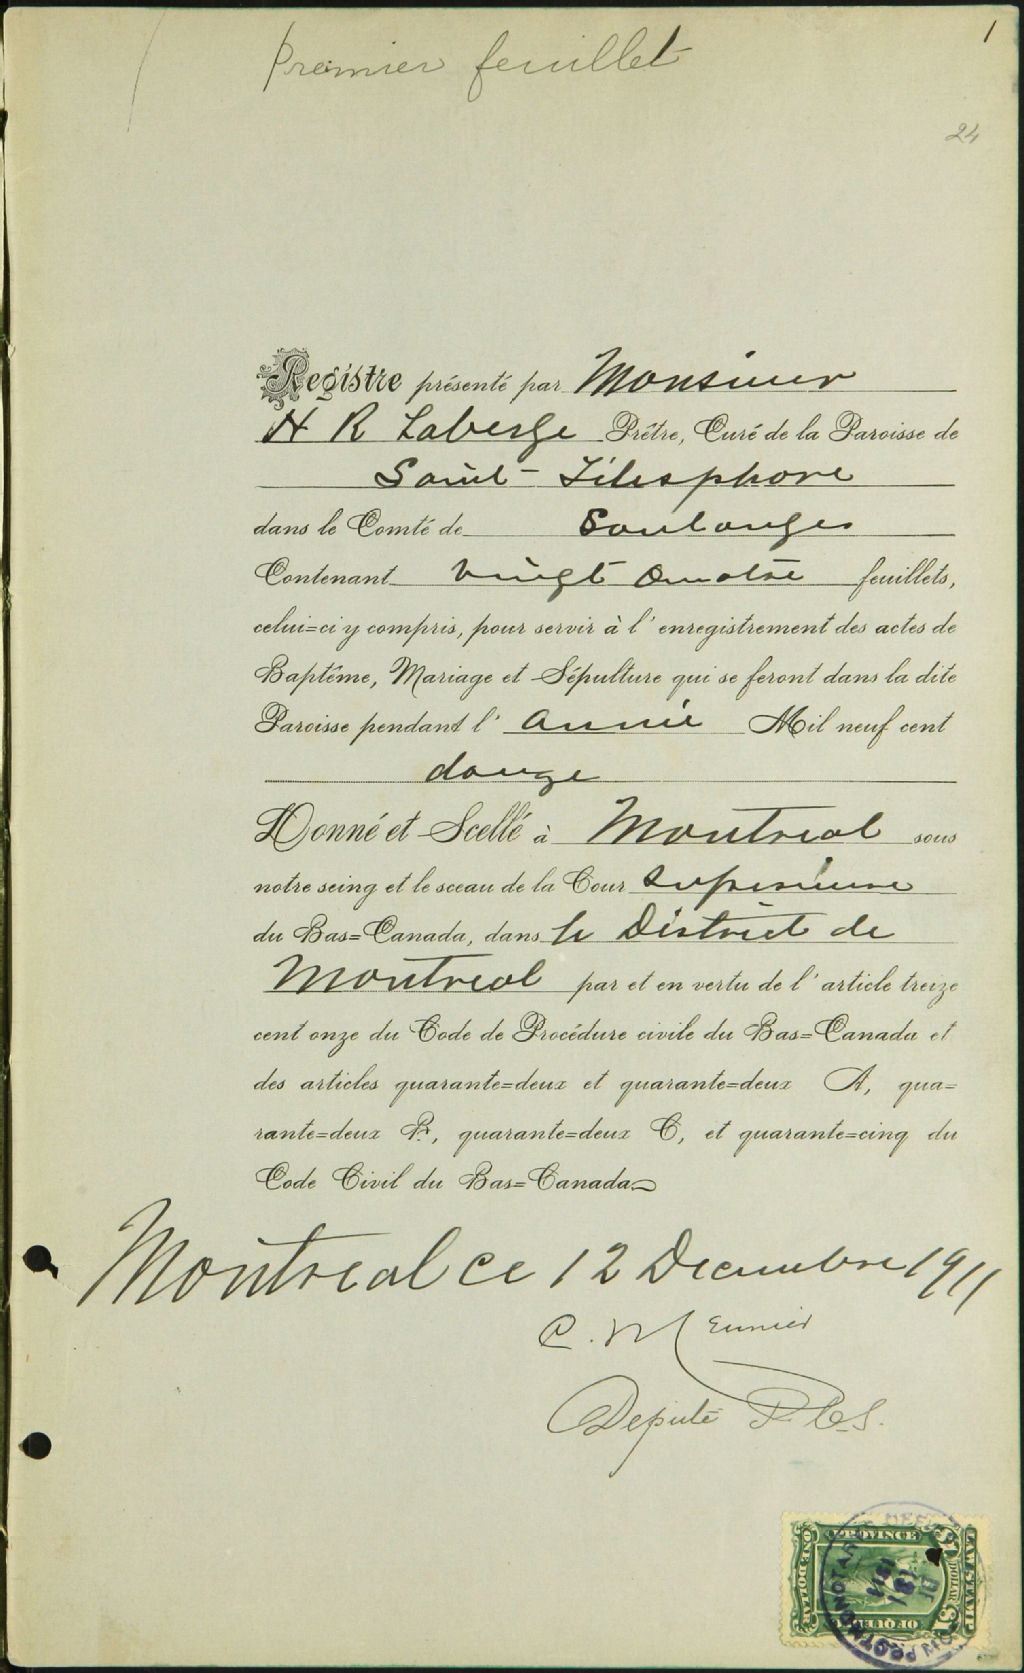 Premier feuillet
1
24
Registre présenté par Monsieur
H R Laberge Prêtre, Curé de la Paroisse de
Saint-Télesphore
dans le Comté de Soulanges
Contenant vingt quatre feuillets,
celui=ci y compris, pour servir à l'enregistrement des actes de
Baptême, Mariage et Sépulture qui se feront dans la dite
Paroisse pendant l'année Mil neuf cent
douze
Donné et Scellé à Montreal sous
notre seing et le sceau de la Cour Superieure
du Bas=Canada, dans le District de
Montreal par et en vertu de l'article treize
cent onze du Code de Procédure civile du Bas=Canada et
des articles quarante=deux et quarante=deux A, qua=
rante=deux B, quarante=deux C, et quarante=cinq du
Code Civil du Bas=Canada
Montreal ce 12 Decembre 1911
C. Meunier
Deputé P.C.S.
PROVINCE
OF QUEBEC
LAW STAMP
ONE DOLLAR
DOLLAR
$1